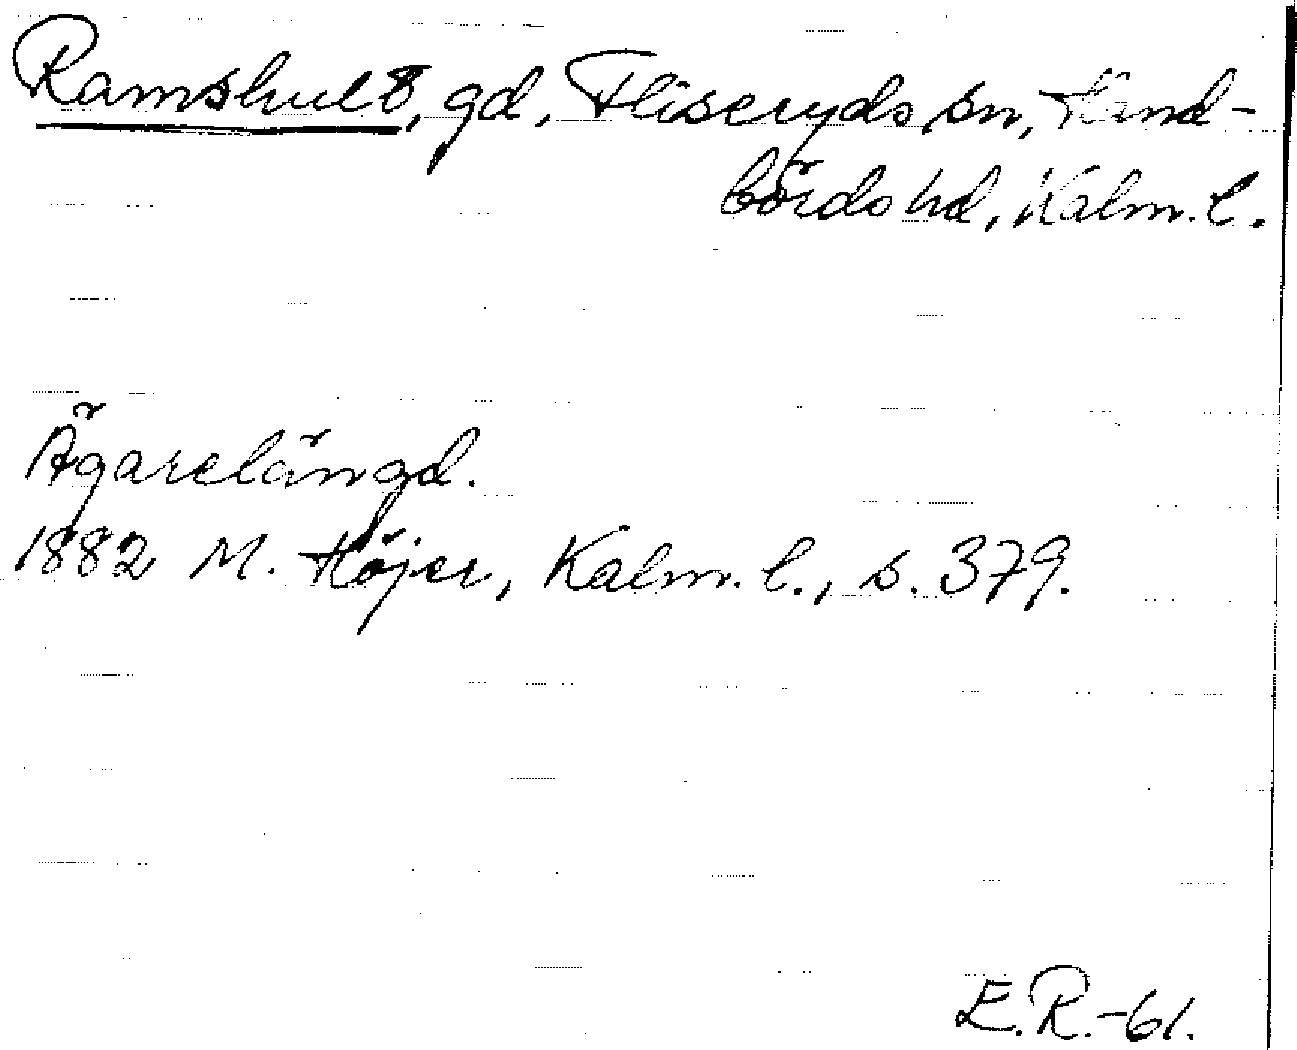 Ramshult, gd, Fliseryds sn, Hand-
börds hd, Kalm. l.
Ägarelängd.
1882 M. Höjer, Kalm. l., s. 379.
E.R.-61.